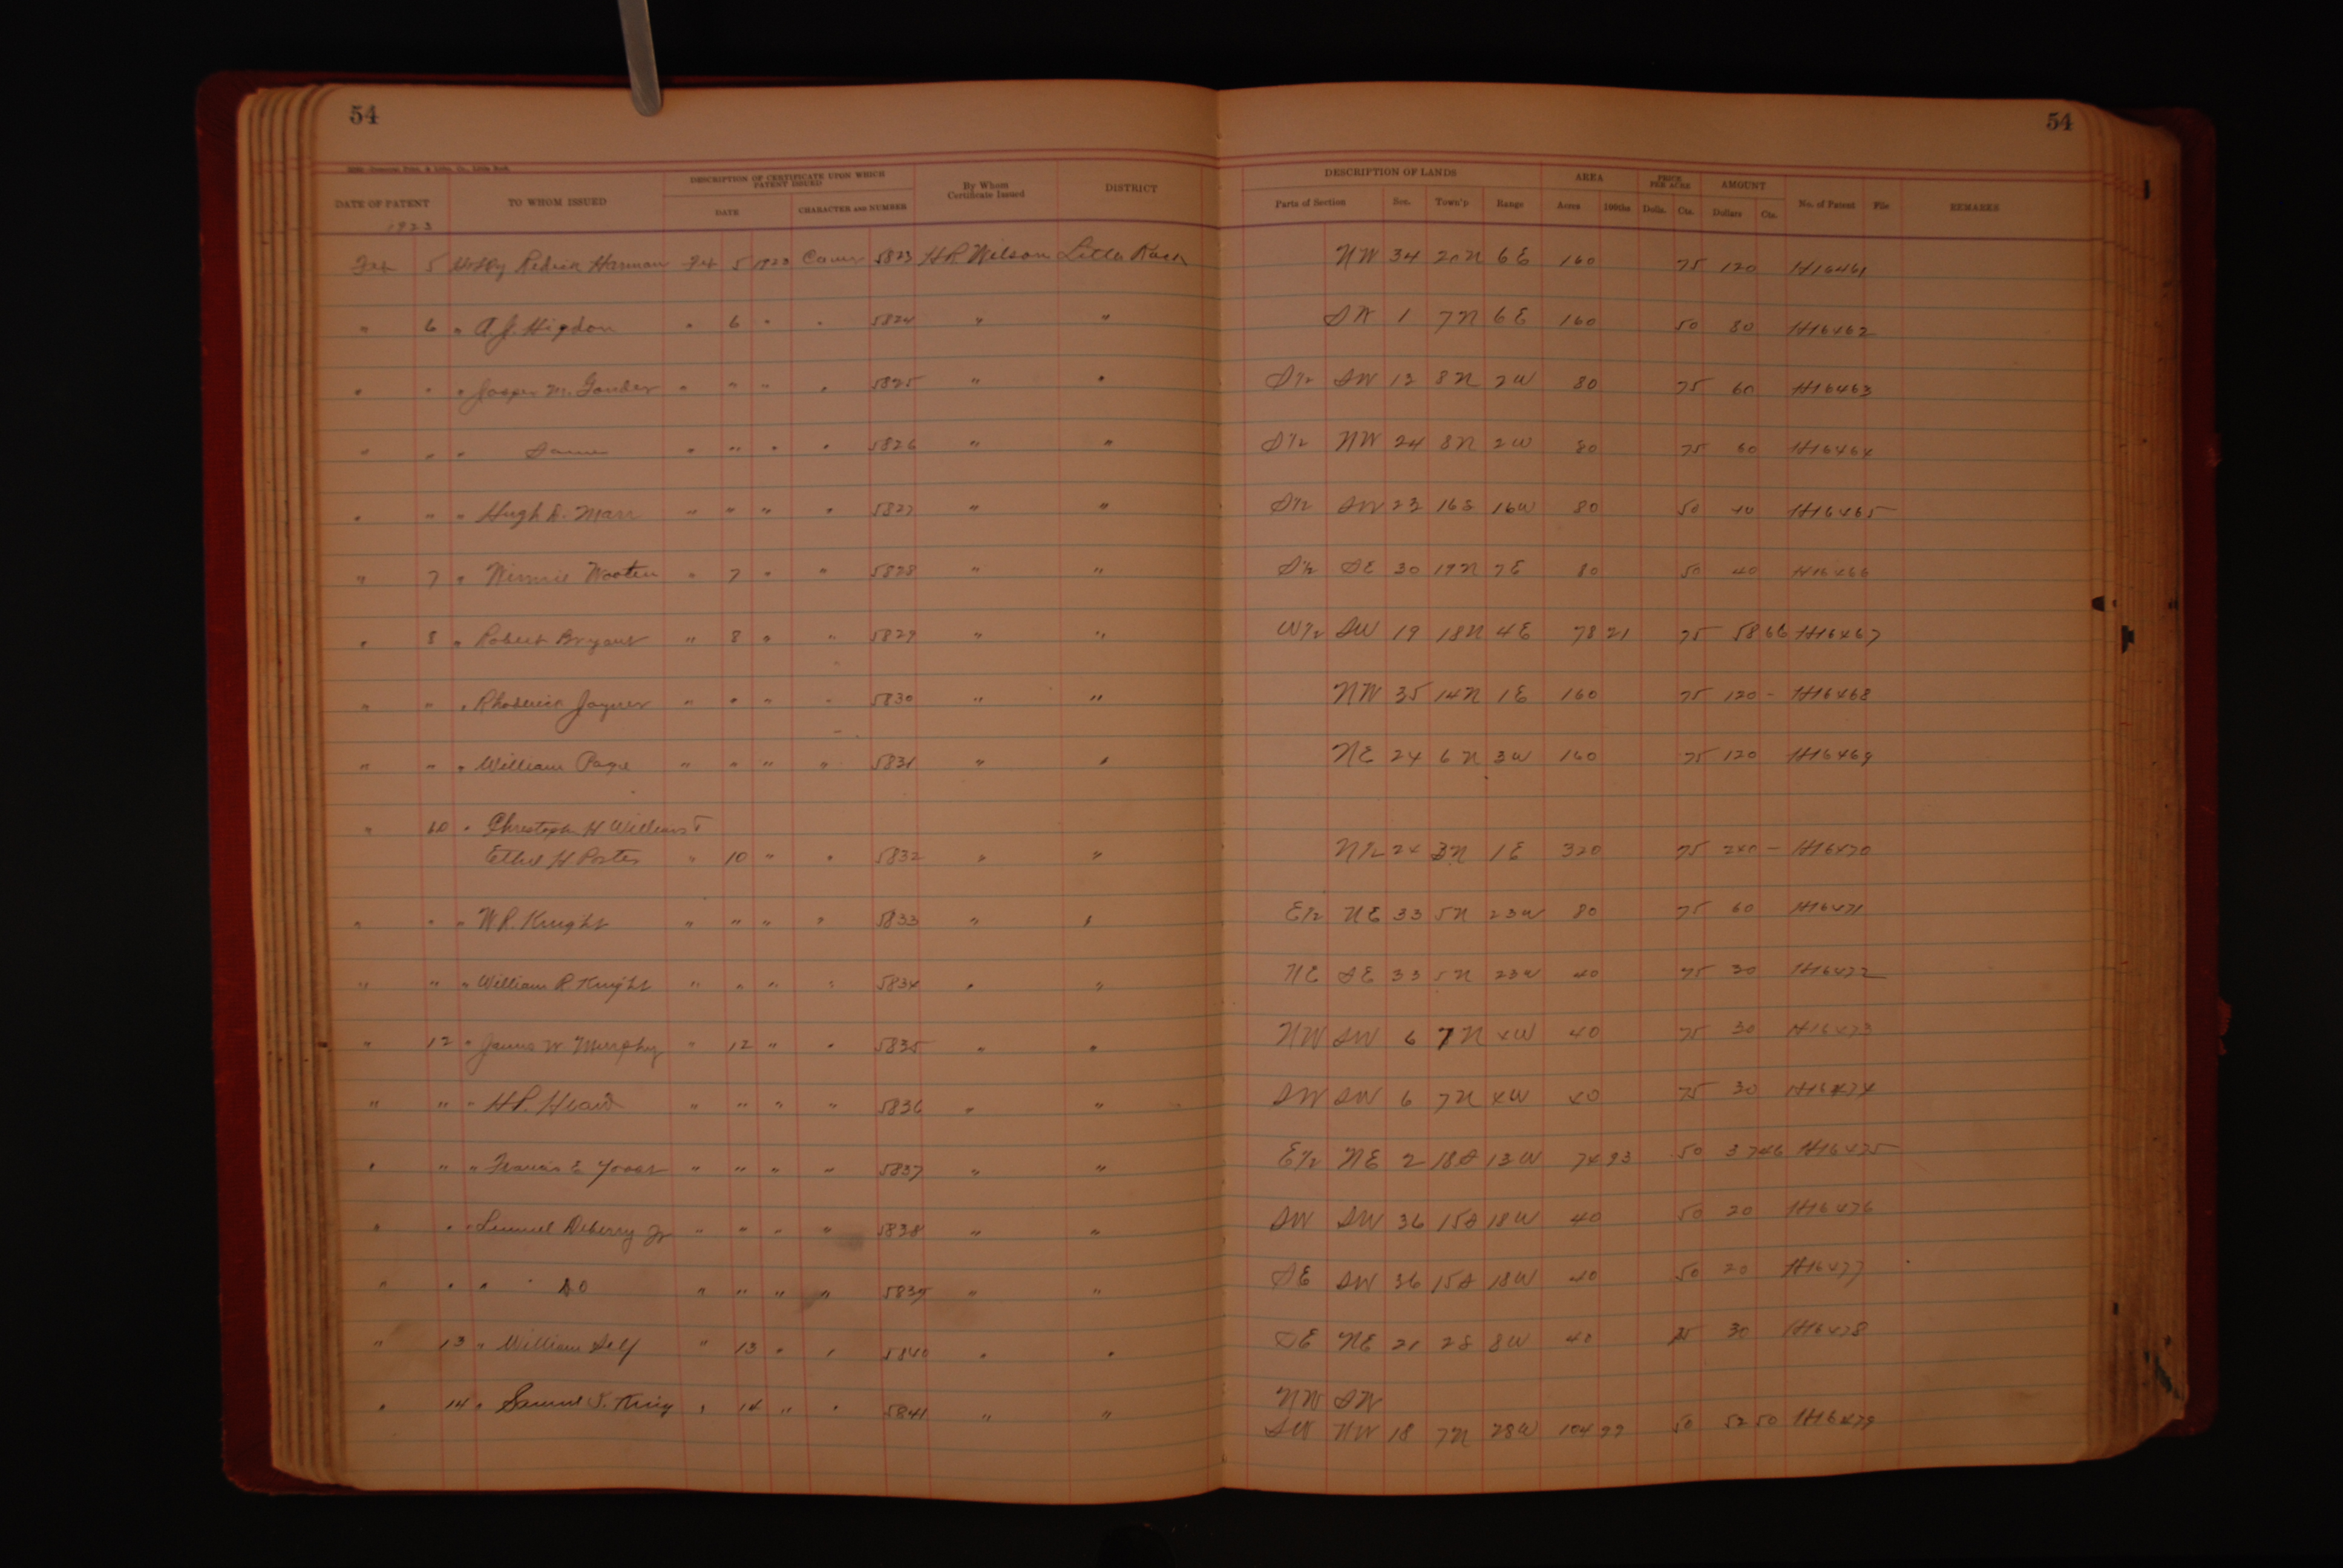 54 54
DATE OF PATENT TO WHOM ISSUED DESCRIPTION OF CERTIFICATE UPON WHICH PATENT ISSUED By Whom Certificate Issued DISTRICT DESCRIPTION OF LANDS AREA PRICE PER ACRE AMOUNT No. of Patent File REMARKS
DATE CHARACTER AND NUMBER Parts of Section Sec. Town'p Range Acres 100ths Dolls. Cts. Dollars Cts.
1923
Feb 5 Harman Feb 5 1923 5823 H R Wilson Little Rock NW 34 20N 6E 160 75 120 H16461
" 6 " A.J. Higdon " 6 " " 5824 " " SW 1 7N 6E 160 50 80 H16462
" " " Jasper M. " " " " 5825 " " S1/2 SW 13 8N 2W 80 75 60 H16463
" " " Same " " " " 5826 " " S1/2 NW 24 8N 2W 80 75 60 H16464
" " " Hugh D. Marr " " " " 5827 " " S1/2 SW 23 16S 16W 80 50 40 H16465
" 7 " Winnie Wooten " 7 " " 5828 " " S1/2 SE 30 19N 7E 80 50 40 H16466
" 8 " Robert Bryant " 8 " " 5829 " " W1/2 SW 19 18N 4E 78 21 75 58 66 H16467
" " " Rhoderick Joyner " " " " 5830 " " NW 35 14N 1E 160 75 120 - H16468
" " " William Page " " " " 5831 " " NE 24 6N 3W 160 75 120 H16469
" 10 " Christoph H Williams &
Ethel H Porter " 10 " " 5832 " " N1/2 24 3N 1E 320 75 240 - H16470
" " " W R. Knight " " " " 5833 " " E1/2 NE 33 5N 23W 80 75 60 H16471
" " " William R Knight " " " " 5834 " " NE SE 33 5N 23W 40 75 30 H16472
" 12 " James W Murphy " 12 " " 5835 " " NW SW 6 7N 4W 40 75 30 H16473
" " " H P. Heard " " " " 5836 " " SW SW 6 7N 4W 40 75 30 H16474
" " " Francis E " " " " 5837 " " E1/2 NE 2 18S 13W 74 93 50 37 46 H16475
" " " Lemuel Deberry Jr " " " " 5838 " " SW SW 36 15S 18W 40 50 20 H16476
" " " Do " " " " 5839 " " SE SW 36 15S 18W 40 50 20 H16477
" 13 " William Self " 13 " " 5840 " " SE NE 21 2S 8W 40 75 30 H16478
" 14 " Samuel S. King " 14 " " 5841 " " NW SW
SW NW 18 7N 28W 104 99 50 52 50 H16479